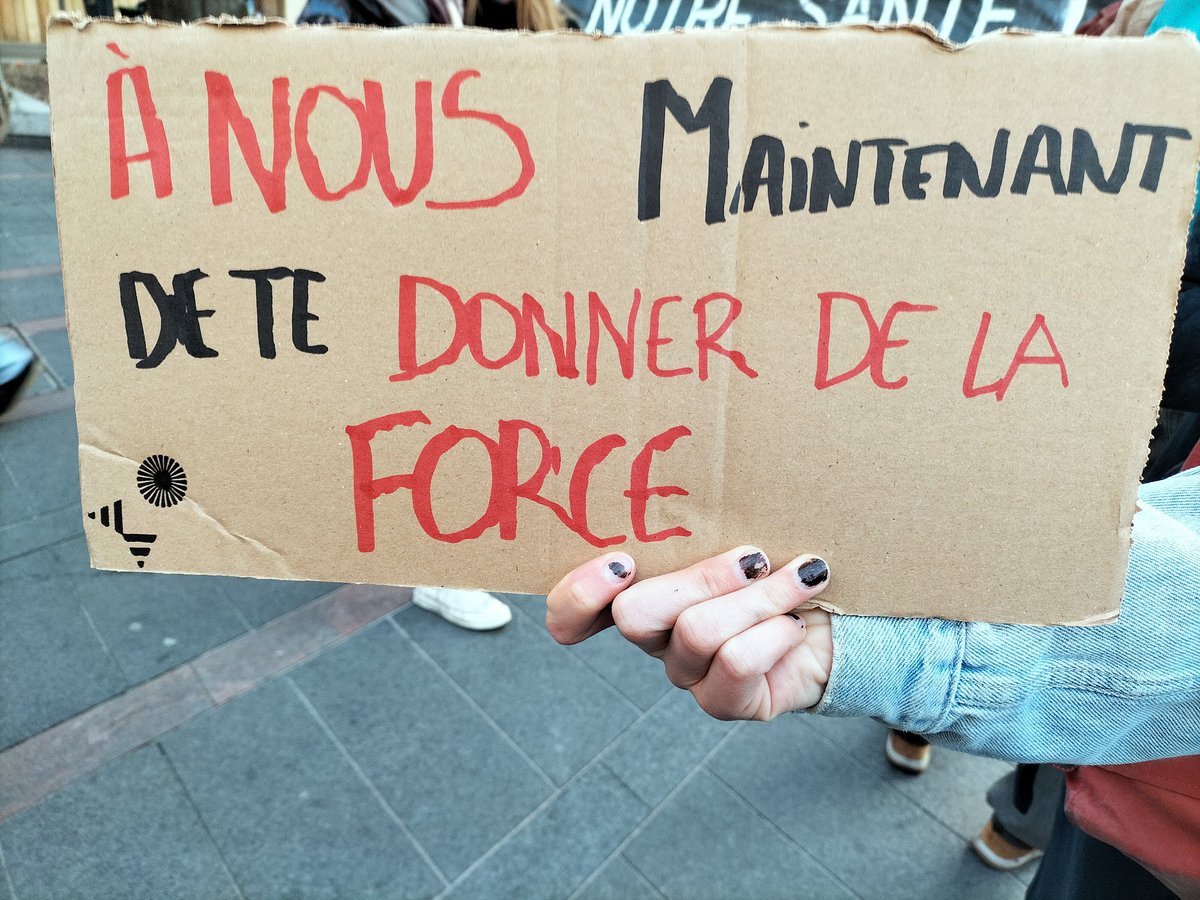 NOTRE SANTÉ
À NOUS MAiNTENANT
DE TE DONNER DE LA
FORCE